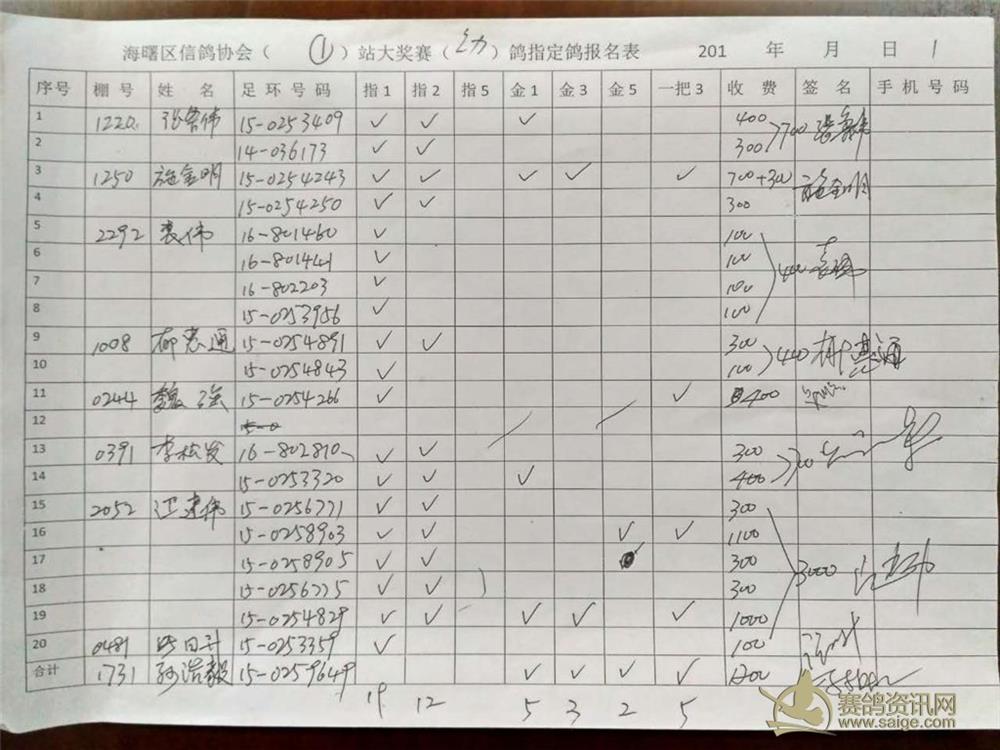 海曙区信鸽协会（ ① ）站大奖赛（ ）鸽指定鸽报名表 201 年 月 日 1
序号 棚号 姓名 足环号码 指1 指2 指5 金1 金3 金5 一把3 收费 签名 手机号码
1 1220 张 伟 15-0253409 ✓ ✓ ✓ 400
2 14-036173 ✓ ✓ 300 700
3 1250 施金明 15-0254243 ✓ ✓ ✓ ✓ ✓ 700+300 施金明
4 15-0254250 ✓ ✓ 300
5 2292 袁伟 16-801460 ✓ 100
6 16-801441 ✓ 100 400 袁伟
7 16-802203 ✓ 100
8 15-0253956 ✓ 100
9 1008 柳惠通 15-0254891 ✓ ✓ 300 400
10 15-0254843 ✓ 100
11 0244 魏强 15-0254266 ✓ ✓ 400
12 15-0
13 0391 李松发 16-802810 ✓ ✓ 300
14 15-0253320 ✓ ✓ ✓ 400
15 2052 江建伟 15-0256771 ✓ ✓ 300
16 15-0258903 ✓ ✓ ✓ ✓ 1100
17 15-0258905 ✓ ✓ 300 3000
18 15-0256775 ✓ ✓ 300
19 15-0254829 ✓ ✓ ✓ ✓ ✓ 1000
20 0481 15-0253359 ✓ 100
合计 1731 孙浩毅 15-0259649 ✓ ✓ ✓ ✓
19 12 5 3 2 5
赛鸽资讯网
www.saige.com